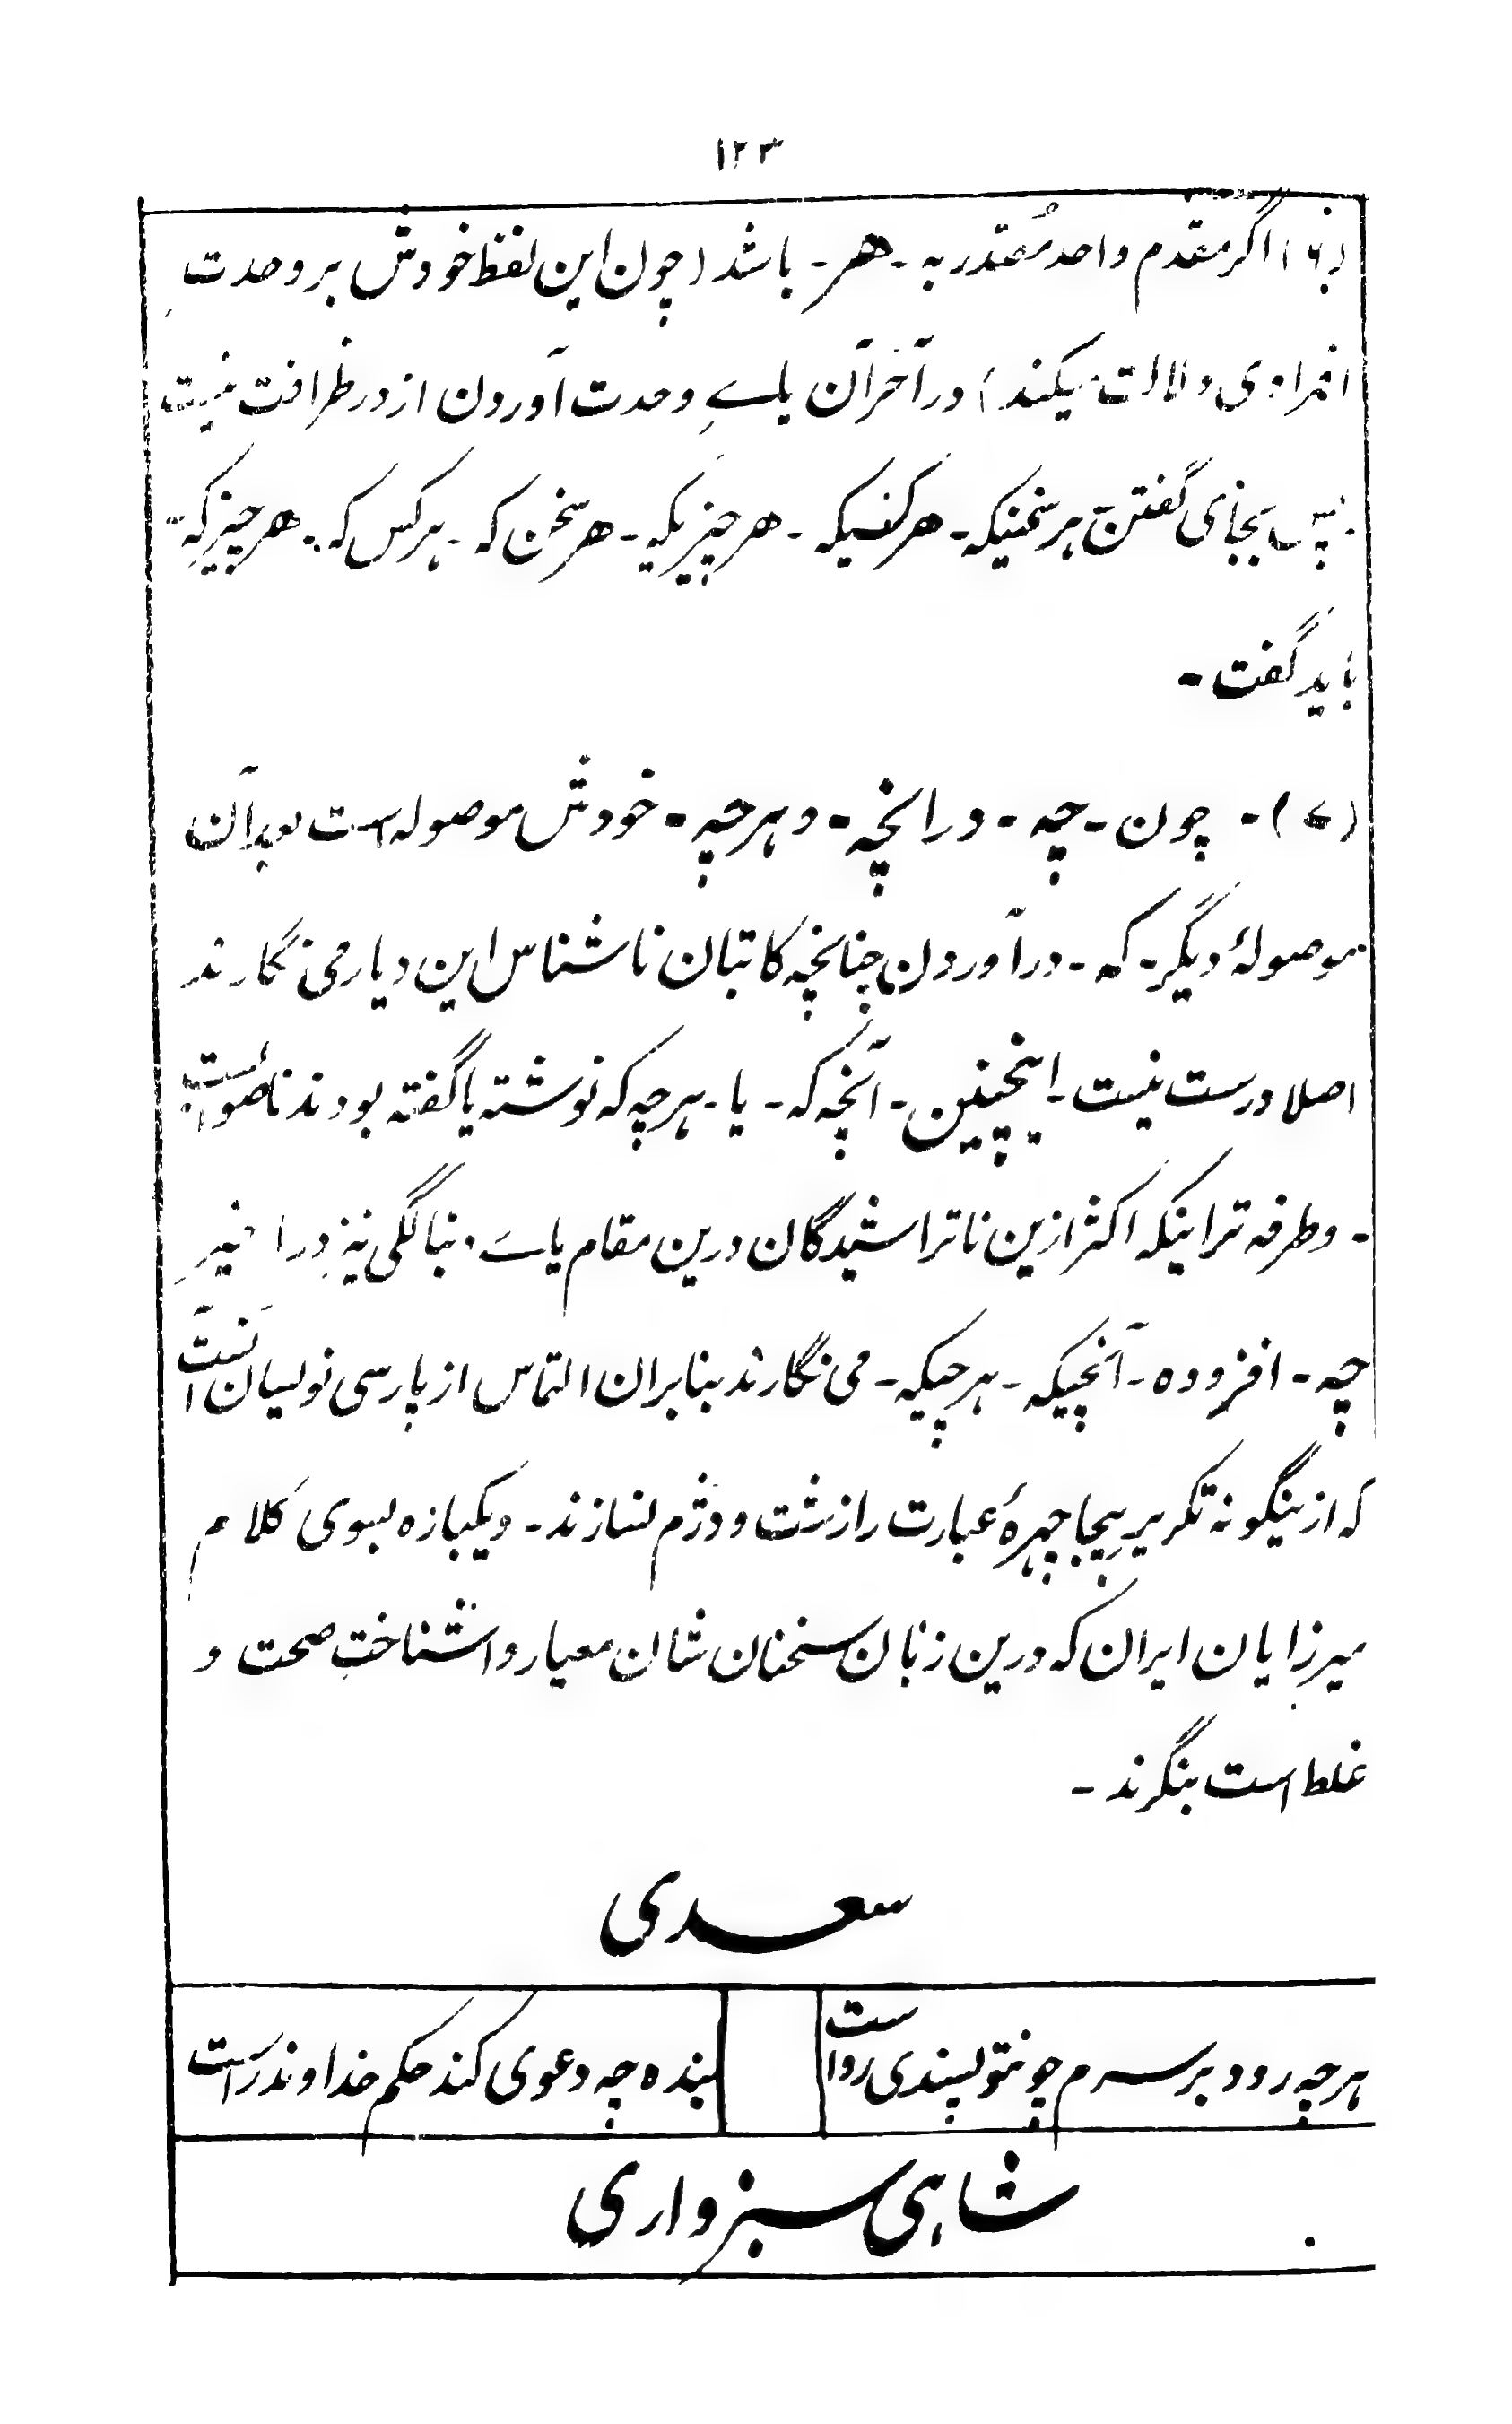 ۱۲۳
(۶) اگر مقدم واحد مُصدر به - هر - باشد (چون این لفظ خودش بر وحدتِ
افرادی دلالت میکند) در آخرآن یاےِ وحدت آوردن از در ظرافت نیست
پس بجای گفتن هر سخنیکه - هر کسیکه - هر چیزیکه - هر سخن که - هر کس که - هر چیز که -
باید گفت -
(۷) - چون - چه - در انچه - و هر چه - خودش موصوله است برآن
موصولهٔ دیگر - که - در آوردن چنانچه کاتبان ناشناس این دیار می نگارند
اصلا درست نیست - اینچنین - آنچه که - یا - هر چه که نوشته یا گفته بودند ناصوابست
- و طرفه تر اینکه اکثر ازین ناتراشیدگان درین مقام یاے بنالگی نیز در اخیرِ
چه - افزوده - آنچیکه - هر چیکه - می نگارند بنابران التماس از پارسی نویسان آنست
که از ینگونه تکریرِ بیجا چهرهٔ عبارت را زشت و دژم نسازند - و یکباره بسوی کلام
میرزایان ایران که درین زبان سخنان شان معیار و اشناختِ صحت و
غلط است بنگرند -
سعدی
هر چه رود بر سرم چونتو پسندی رواست
بنده چه دعوی کند حکم خداوند راست
شاهی سبزواری